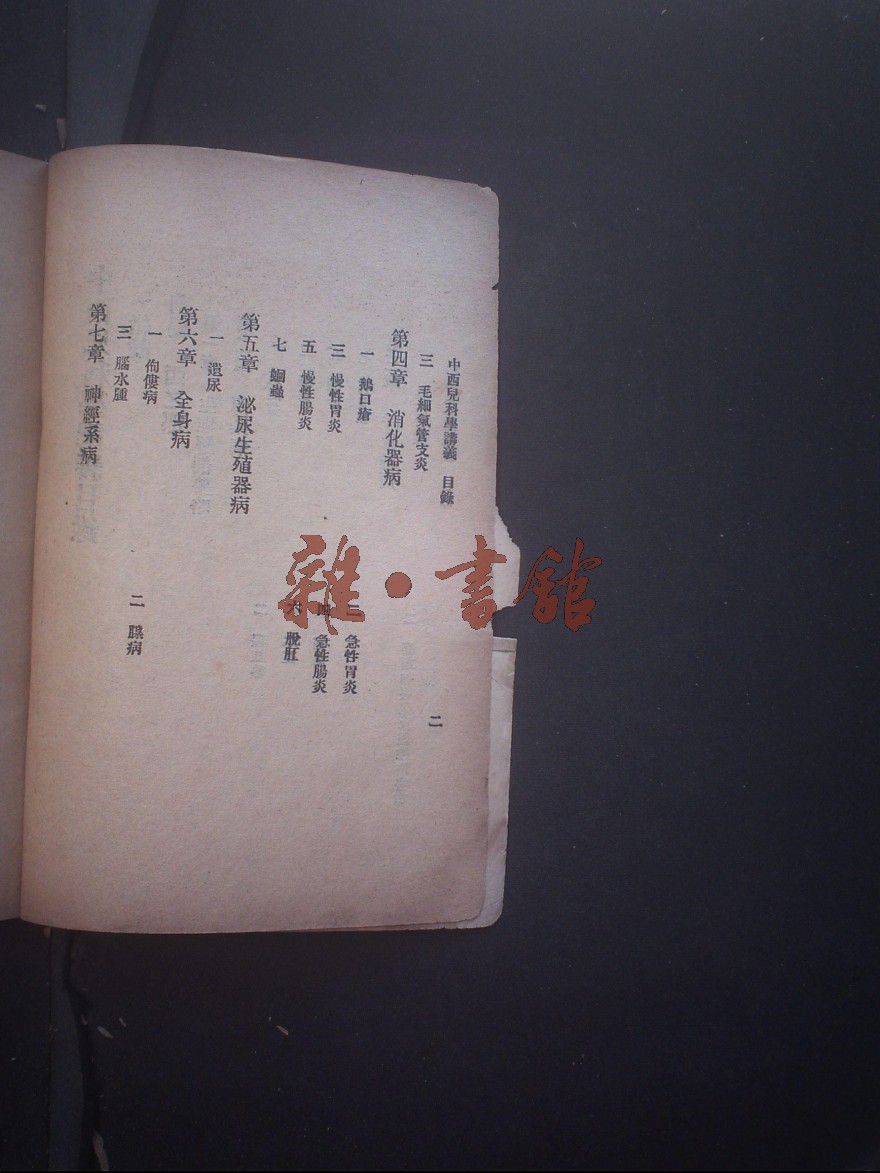 中西兒科學講義　目錄　二
三　毛細氣管支炎
第四章　消化器病
一　鵝口瘡　二　急性胃炎
三　慢性胃炎　四　急性腸炎
五　慢性腸炎　六　脫肛
七　蛔蟲
第五章　泌尿生殖器病
一　遺尿
第六章　全身病
一　佝僂病　二　腺病
三　腦水腫
第七章　神經系病
雜·書館